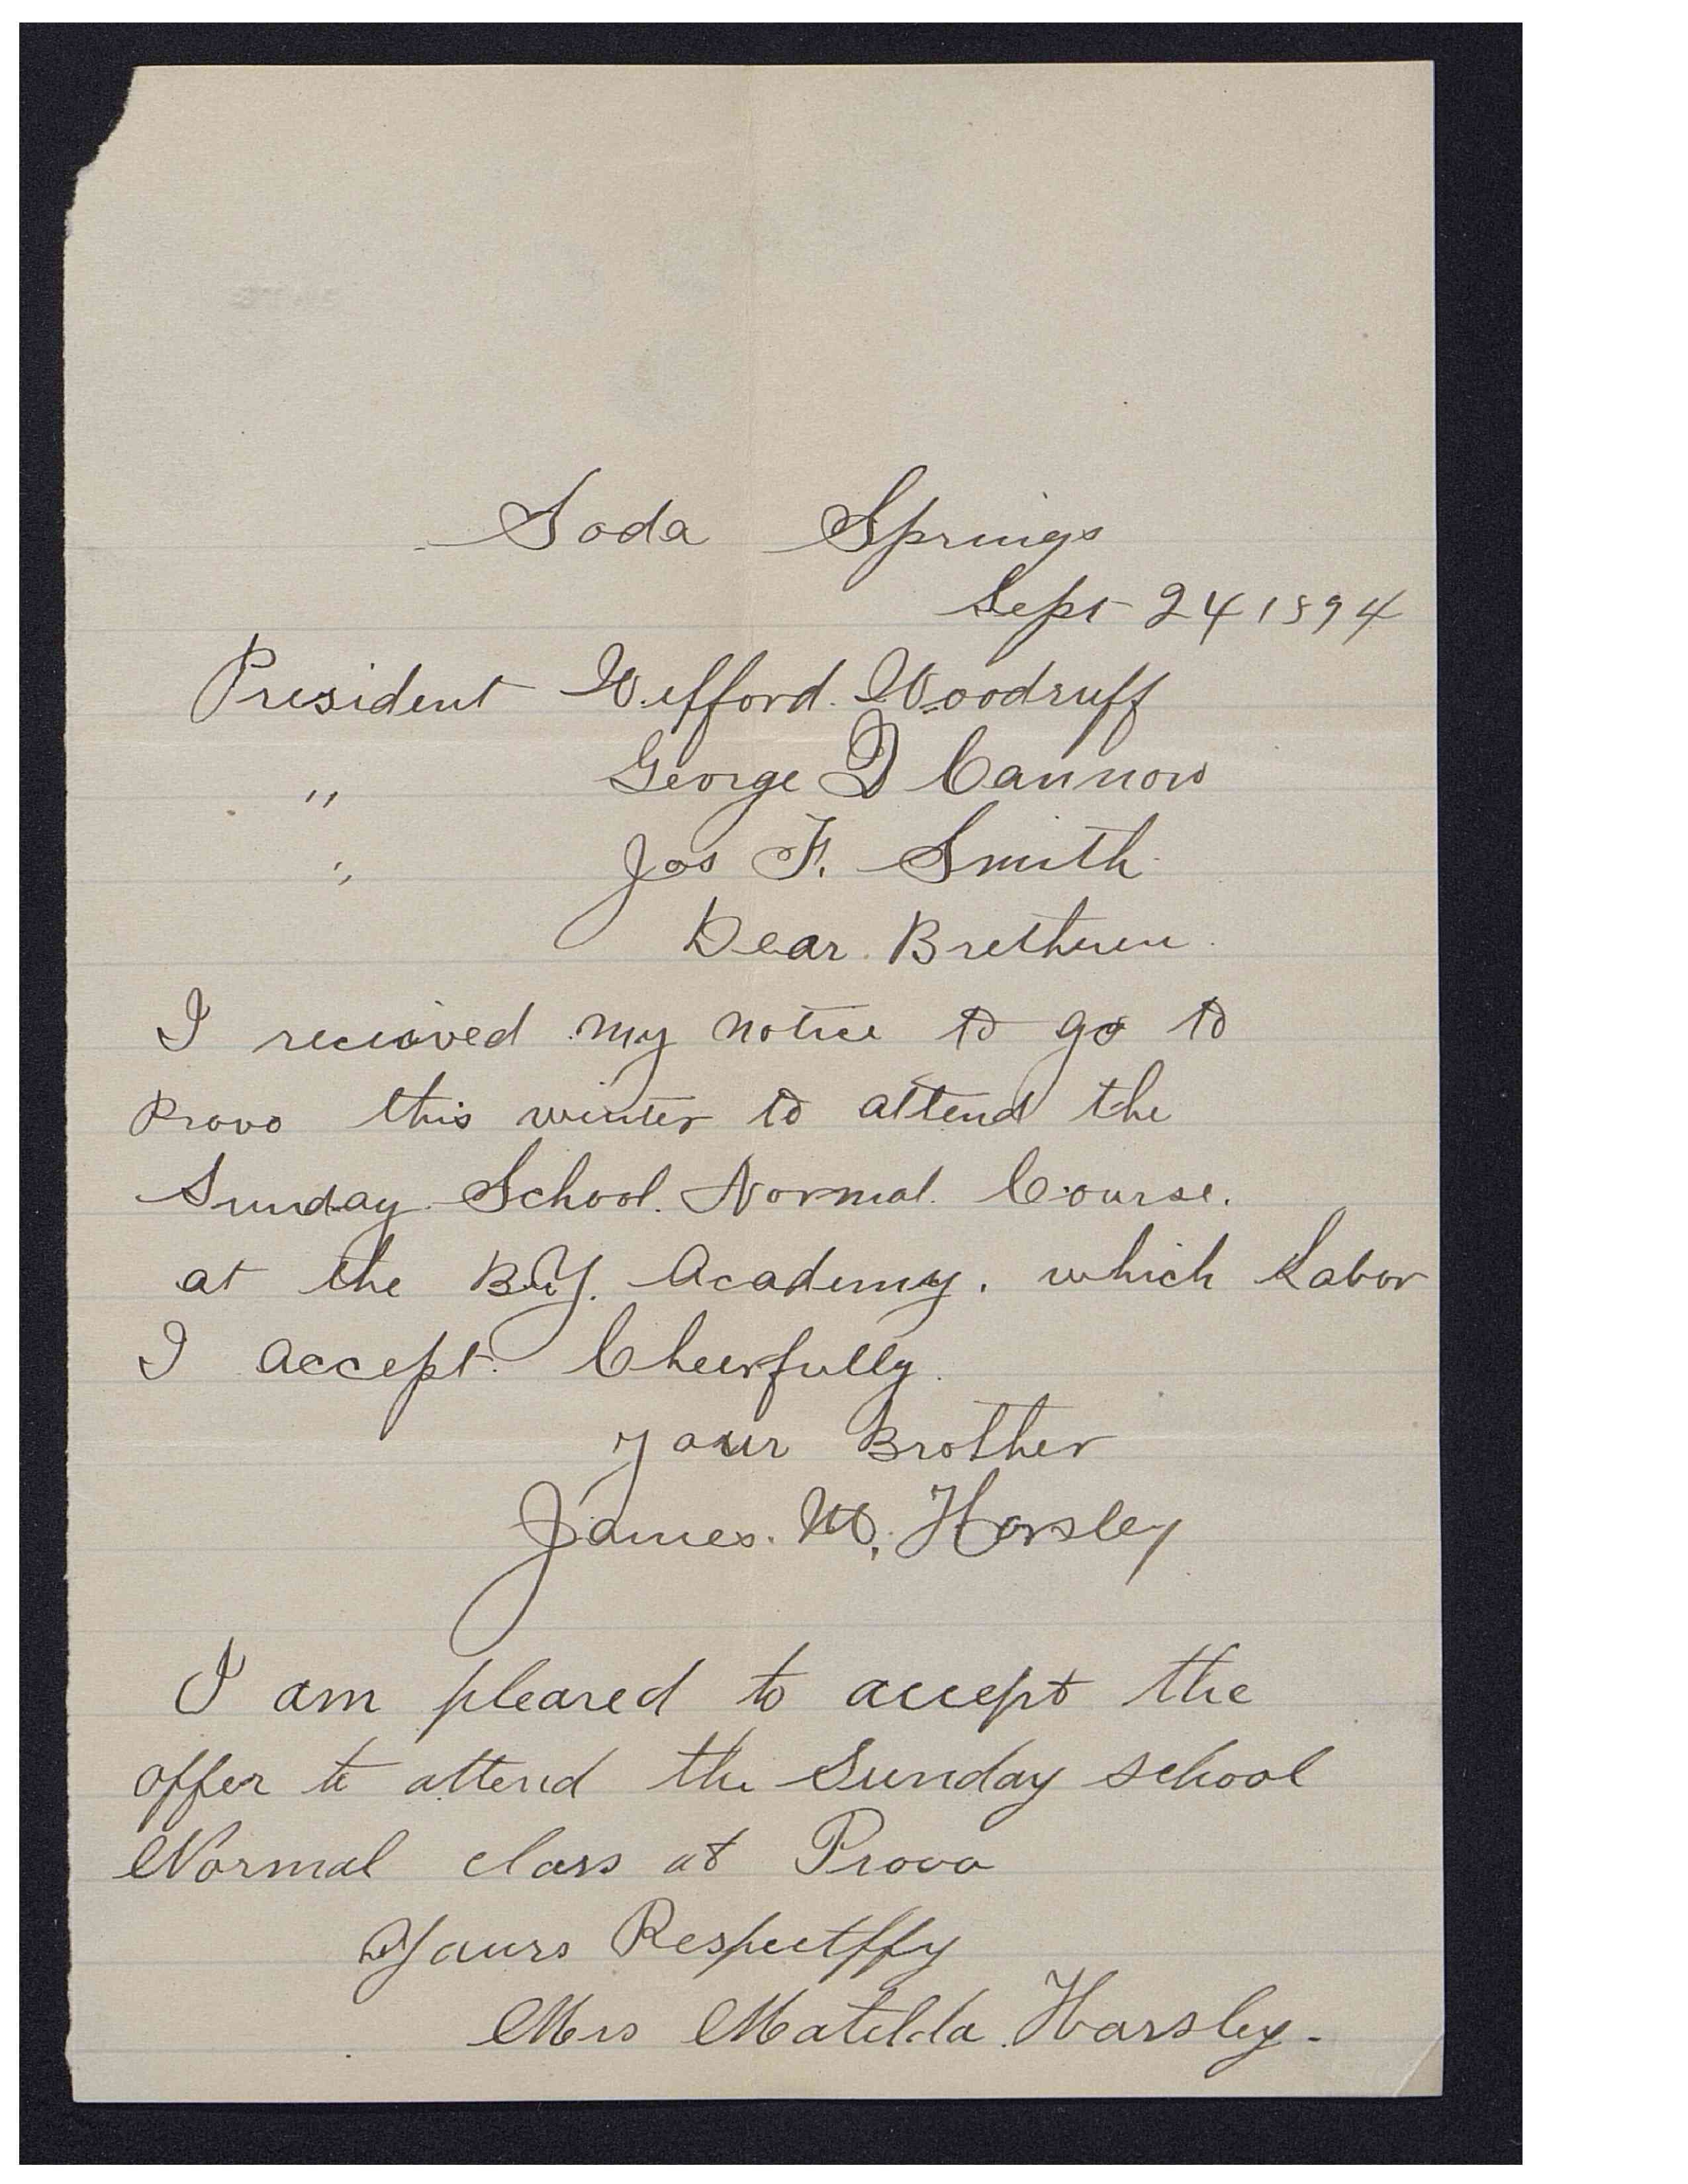 Soda Springs
Sept 24 1894
President Wifford Woodruff
" George Q Cannon
" Jos F. Smith
Dear Brethren
I received my notice to go to
Provo this winter to attend the
Sunday School Normal Course.
at the B.Y. Academy. which Labor
I accept Cheerfully.
your Brother
James. W. Horsley
I am pleased to accept the
offer to attend the Sunday school
Normal class at Provo
Yours Respectffy
Mrs Matilda Horsley.